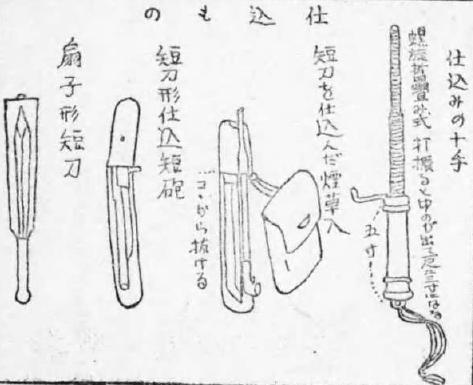 仕込もの
仕込みの十手
螺旋装置の式打振ると中のが出て二尺三寸になる
五寸
短刀を仕込んだ煙草入
コヽから抜ける
短刀形仕込短砲
扇子形短刀